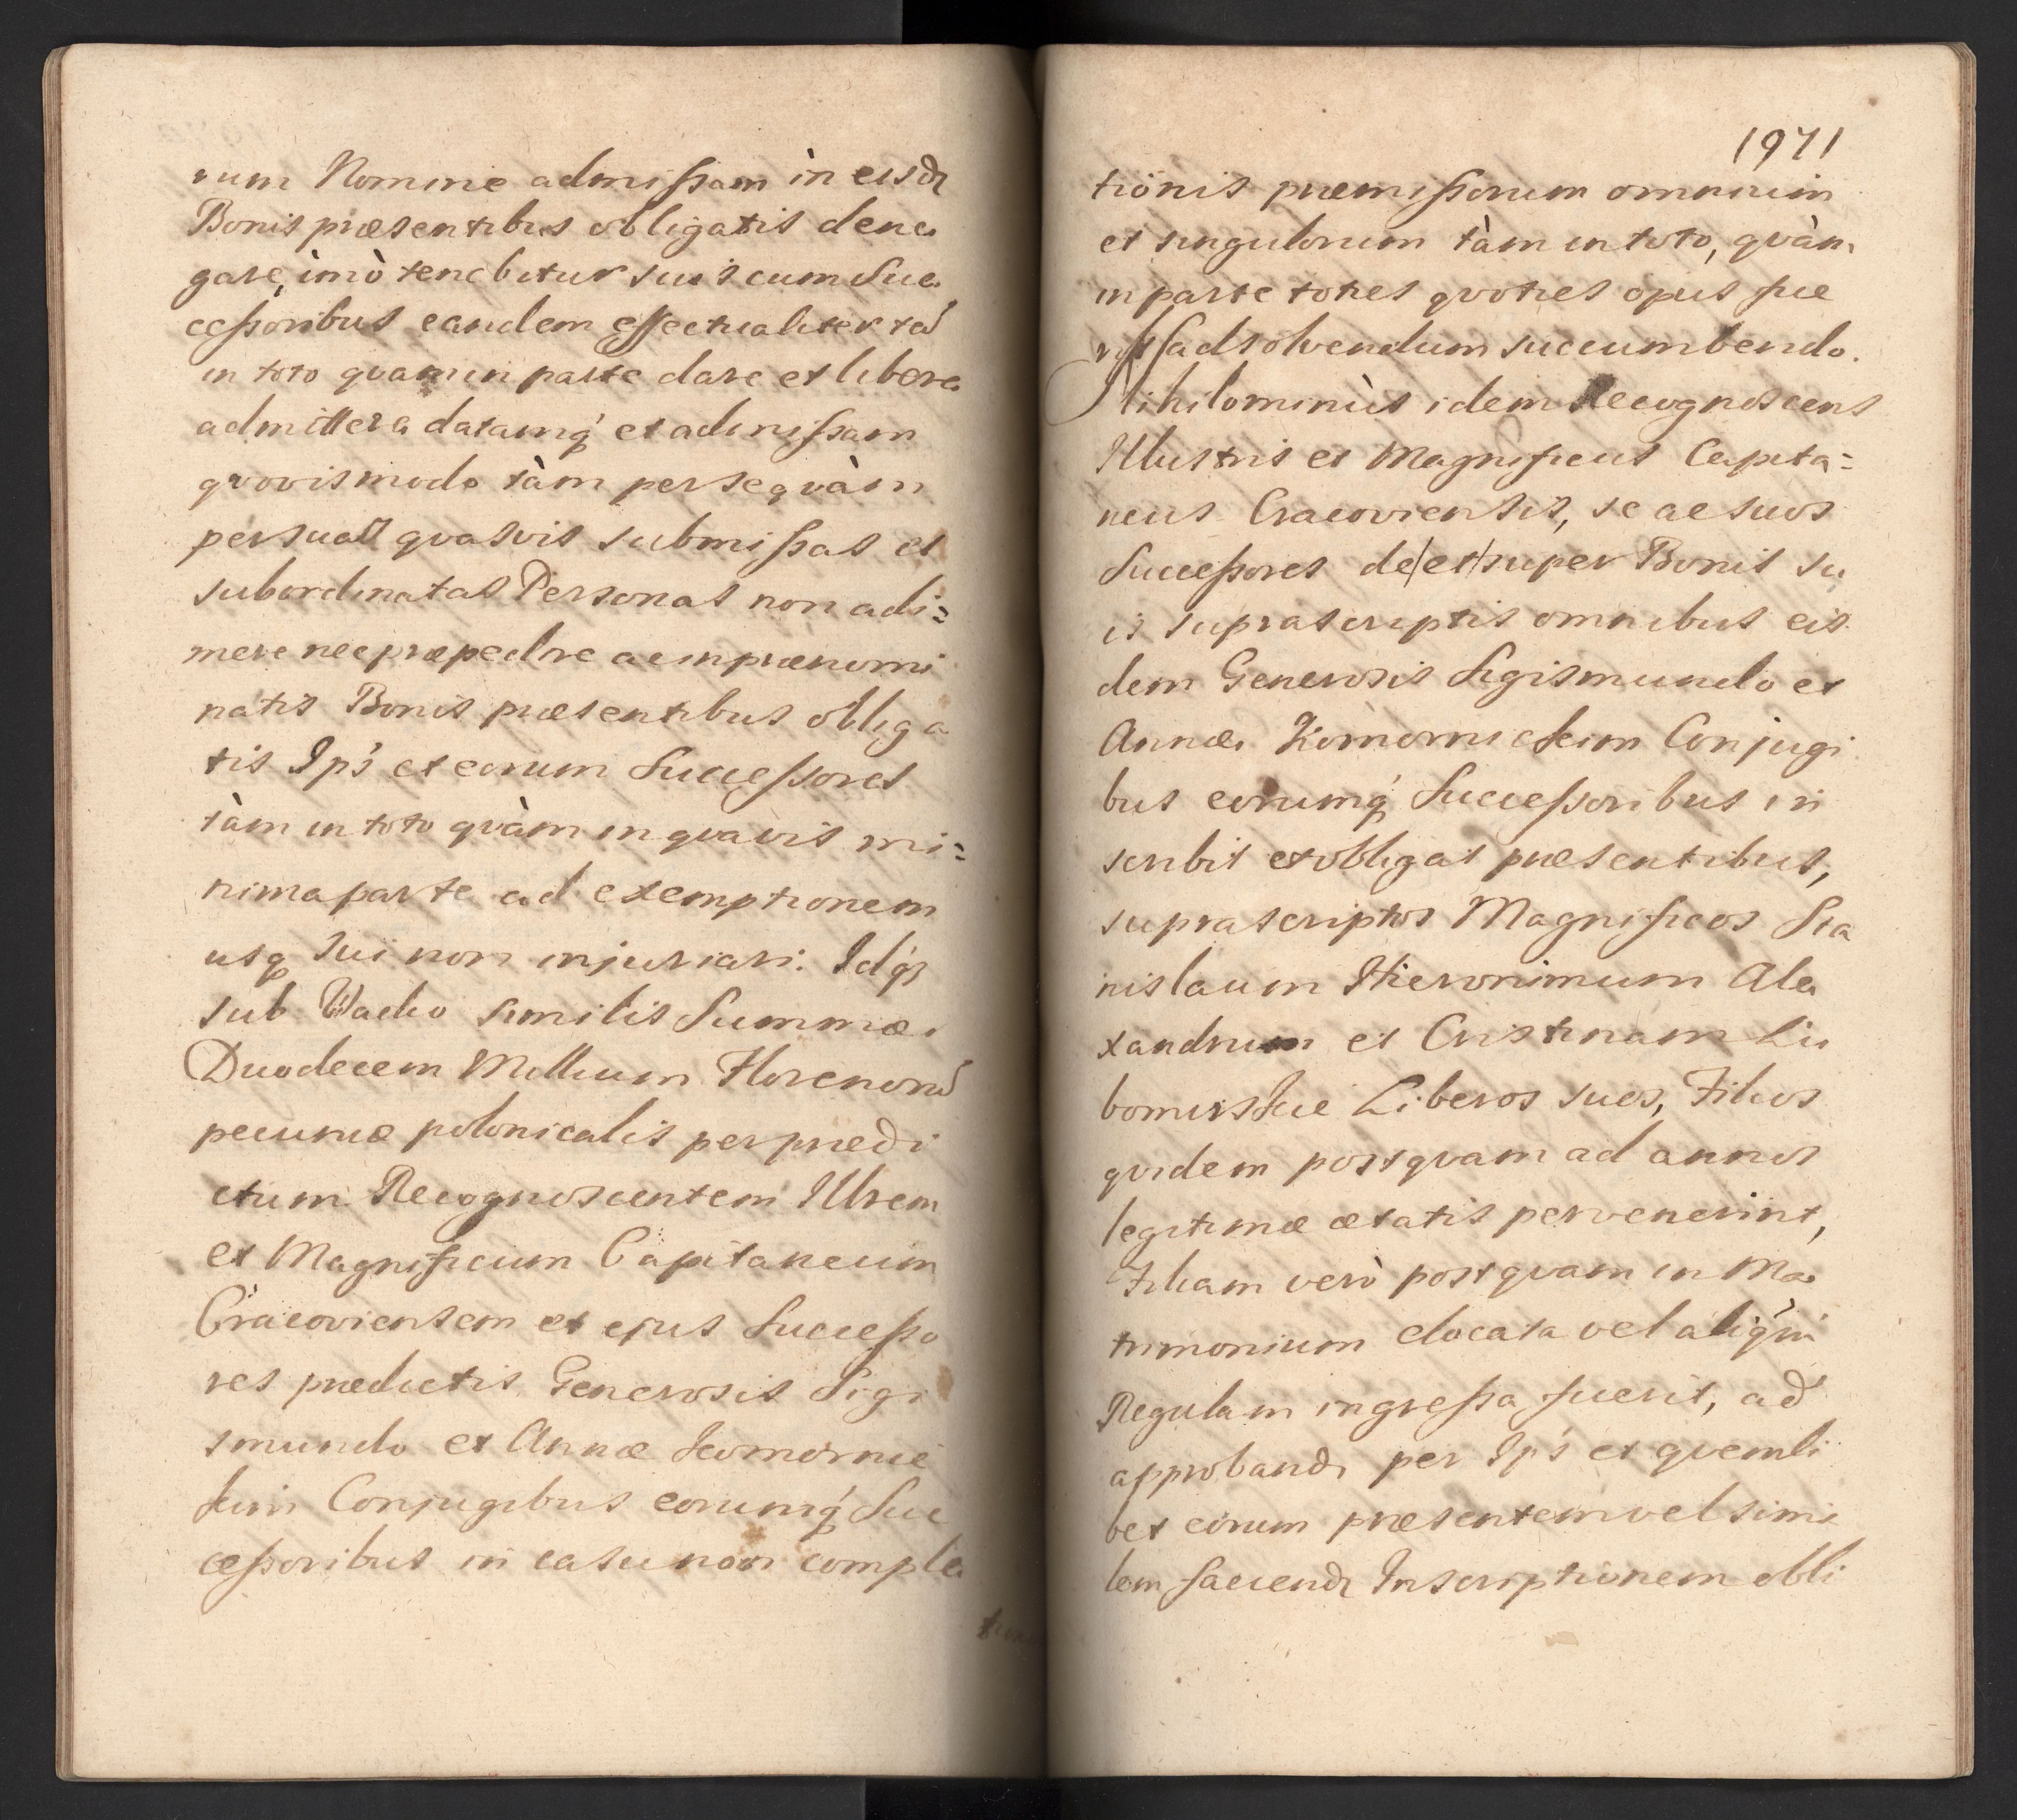 rum Nomine admissam in eisdē
Bonis præsentibus obligatis dene
gare, imò tenebitur suis cum Suc
cessoribus eandem effectualiter tā
in toto quam in parte dare et libere
admittere datamq́ et admissam
qvovismodo tàm per se qvàm
per suas qvasvis submissas et
subordinatas Personas non adi=
mere nec præpedire ac in prænomi
natis Bonis præsentibus obliga
tis Ip's et eorum Successores
tàm in toto qvàm in qvavis mi=
nima parte ad exemptionem
usq sui non injuriari. Idq
sub Vadio similis Summæ
Duodecem Millium Florenorū
pecuniæ polonicalis per prædi
ctum Recognoscentem Illrem
et Magnificum Capitaneum
Cracoviensem et ejus Successo
res prædictis Generosis Sigi
smundo et Annæ Komornic
kim Conjugibus eorumq́ Suc
cessoribus in casu non comple
1971
tionis præmissorum omnium
et singulorum tàm in toto, qvàm
in parte toties qvoties opus fue
rit solvendum succumbendo.
Nihilominùs idem Recognoscens
Illustris et Magnificus Capita=
neus Cracoviensis, se ac suos
Successores de/et/super Bonis su
is suprascriptis omnibus eis
dem Generosis Sigismundo et
Annæ Komornickim Conjugi
bus eorumq́ Successoribus in
scribit et obligat præsentibus,
suprascriptos Magnificos Sta
nislaum Hieronimum Ale
xandrum et Cristinam Lu
bomirskie Liberos suos, Filios
qvidem postqvam ad annos
legitimæ ætatis pervenerint,
Filiam verò postqvam in Ma
trimonium elocata vel aliqū
Regulam ingressa fuerit, ad
approband per Ip's et qvemli
bet eorum præsentem vel simi
lem faciend Inscriptionem obli